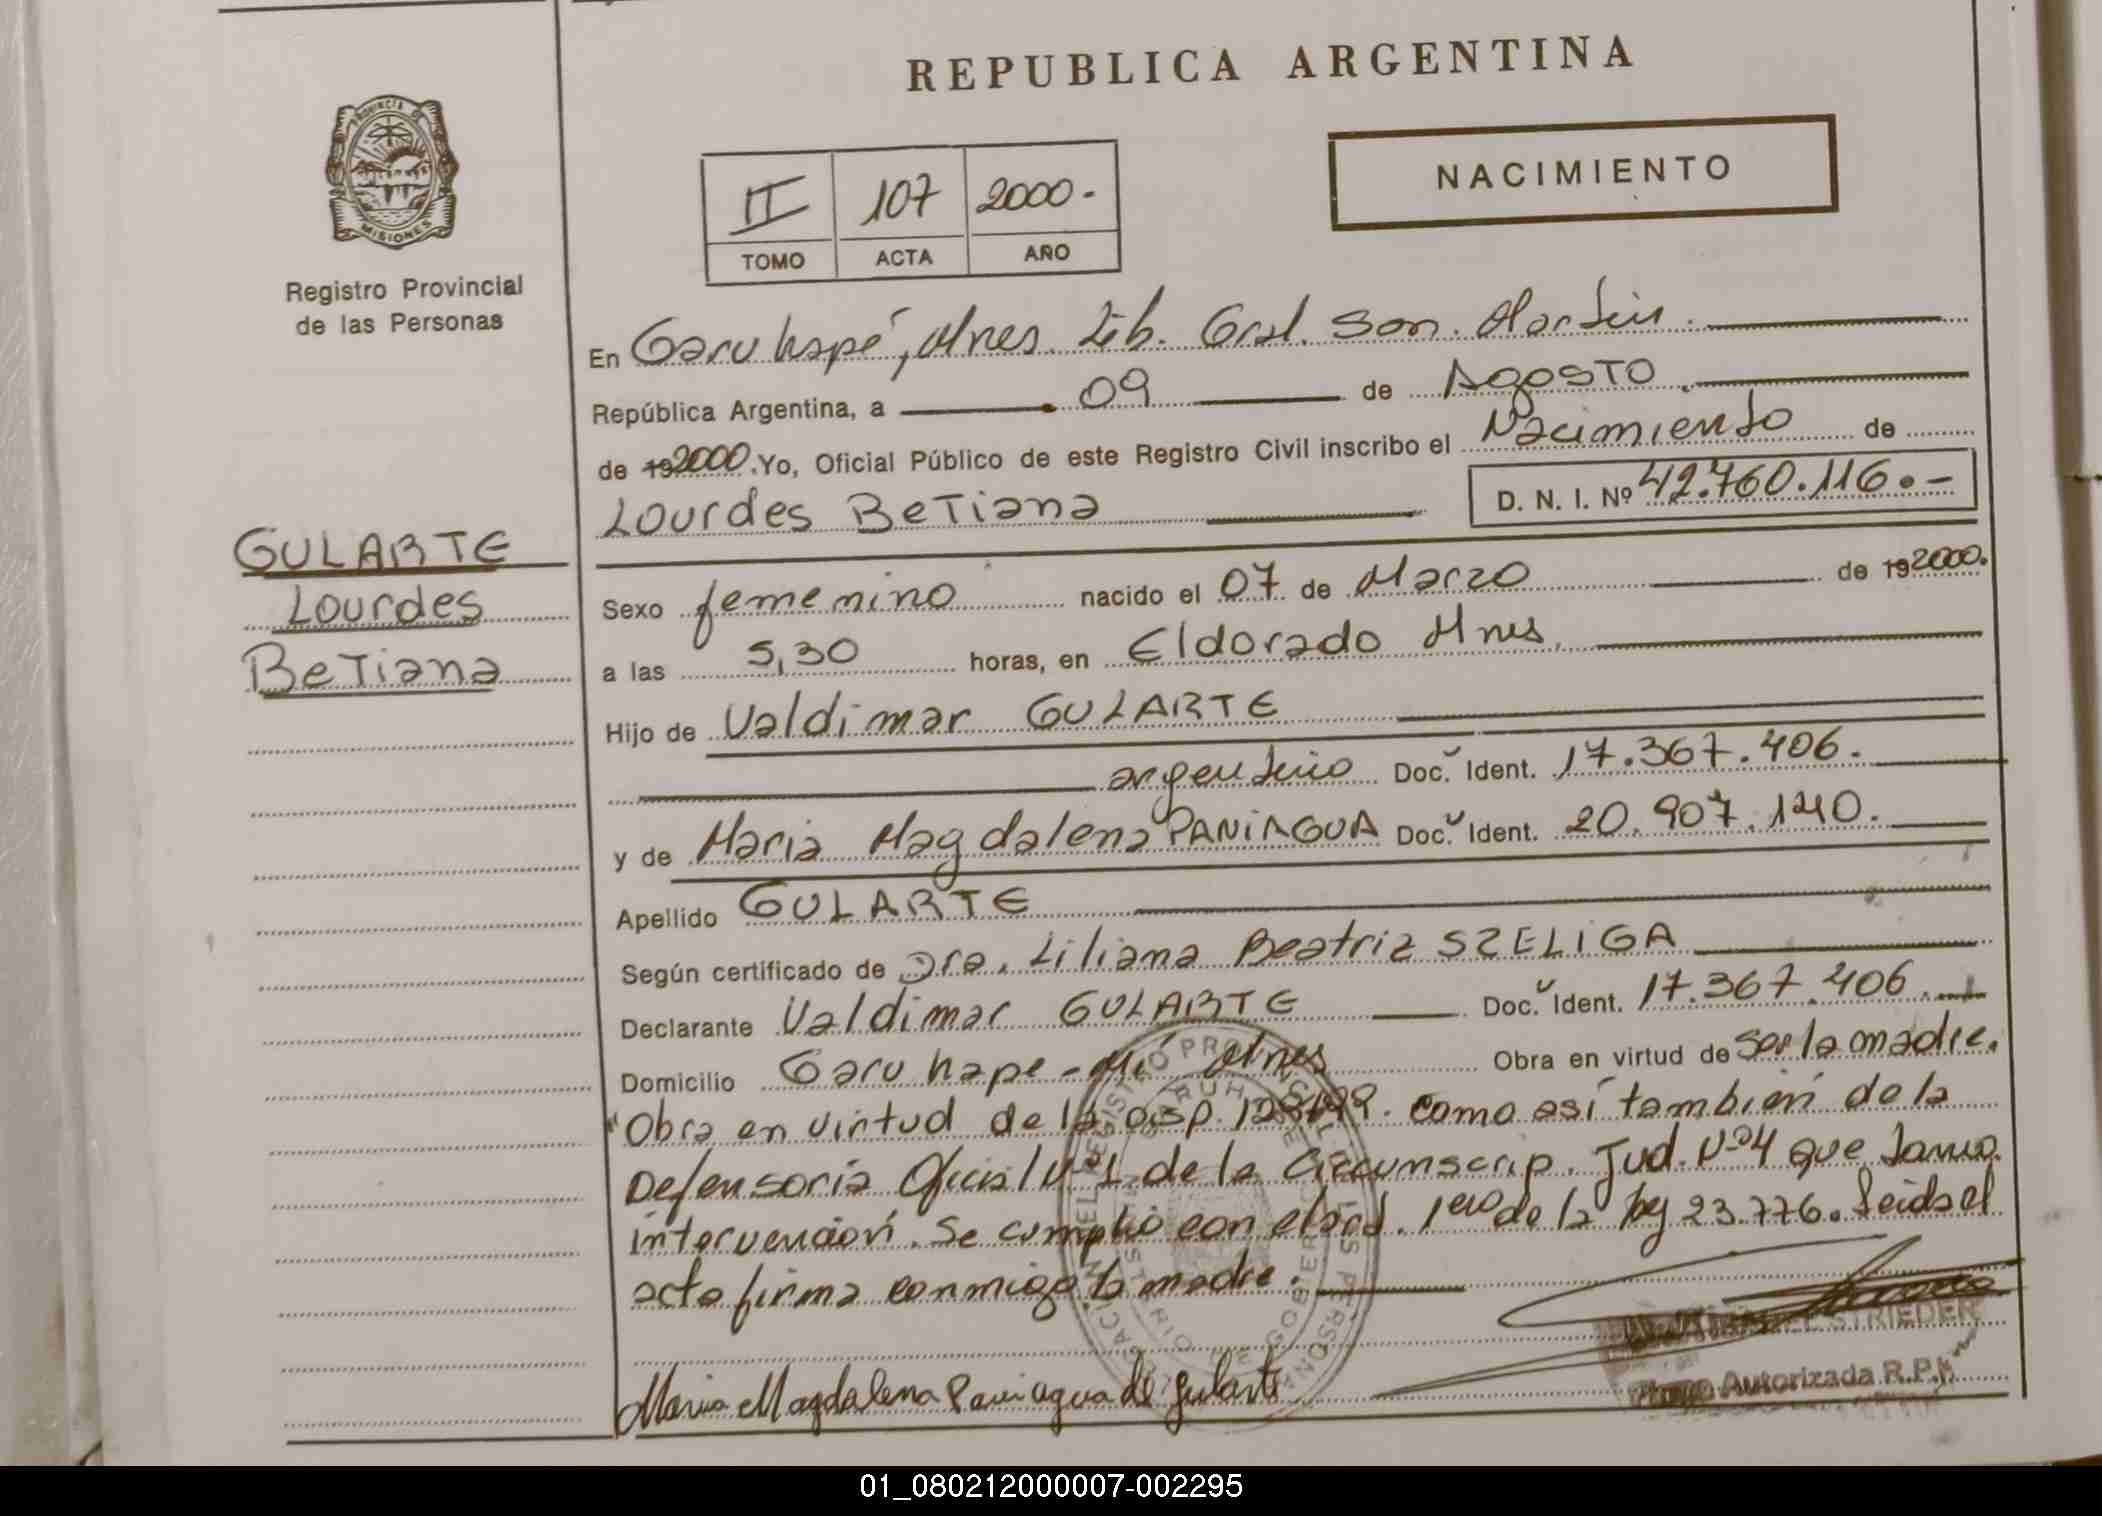 REPUBLICA ARGENTINA
PROVINCIA DE
MISIONES
Registro Provincial
de las Personas
NACIMIENTO
II 107 2000.-
TOMO ACTA AÑO
En Garuhapé, Mnes. Lib. Gral. San. Martin.
República Argentina, a 09 de Agosto
de 192000. Yo, Oficial Público de este Registro Civil inscribo el Nacimiento de
Lourdes Betiana D. N. I. Nº 42.760.116.-
GULARTE
Lourdes
Betiana
Sexo femenino nacido el 07 de Marzo de 192000.
a las 5,30 horas, en Eldorado Mnes.
Hijo de Valdimar GULARTE
argentino Doc. Ident. 17.367.406.
y de Maria Magdalena PANIAGUA Doc. Ident. 20.907.140.
Apellido GULARTE
Según certificado de Dra. Liliana Beatriz SZELIGA
Declarante Valdimar GULARTE Doc. Ident. 17.367.406.
Domicilio Garuhape-Mí Mnes Obra en virtud de ser la madre.
"Obra en virtud de la Disp. como así también de la
Defensoría Oficial Nº 1 de la Circunscrip. Jud. Nº4 que toma
intervención. Se cumplió con el art. 1ero de la ley 23.776. Leida el
acta firma conmigo la madre.
STRIEDER
Autorizada R.P.P.
Maria Magdalena Paniagua de Gularte
01_080212000007-002295